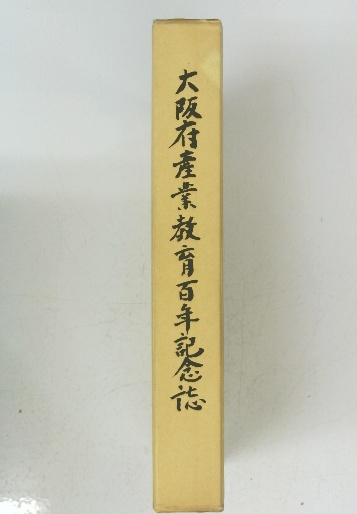 大阪府産業教育百年記念誌